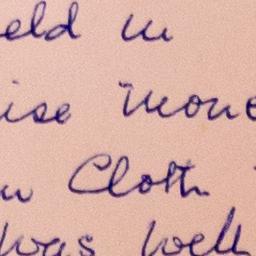 eld in
ise mone
w Cloth
was well